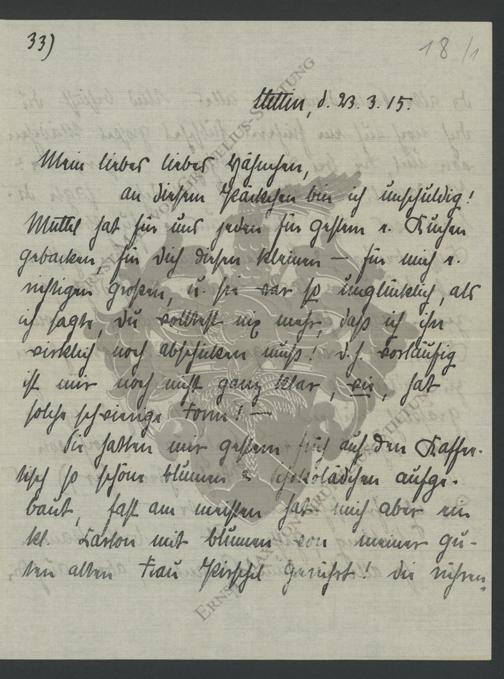 33)
18/1
Stettin, d. 23.3.15.
Mein lieber lieber Hähnchen,
an diesem Päckchen bin ich unschuldig!
Mutti hat für uns jeden für gestern e. Kuchen
gebacken, für Dich diesen kleinen – für mich e.
richtigen großen, u. sie war so unglücklich, als
ich sagte, Du wolltest nix mehr, daß ich ihn
wirklich noch abschicken muß! d.h. vorläufig
ist mir noch nicht ganz klar, wie, hat
solche schwierige Form! –
Sie hatten mir gestern früh auf den Kaffee-
tisch so schöne Blumen u. Schokolädchen aufge-
baut, fast am meisten hat mich aber ein
kl. Karton mit Blumen von meiner gu-
ten alten Frau gerührt! Die rühren